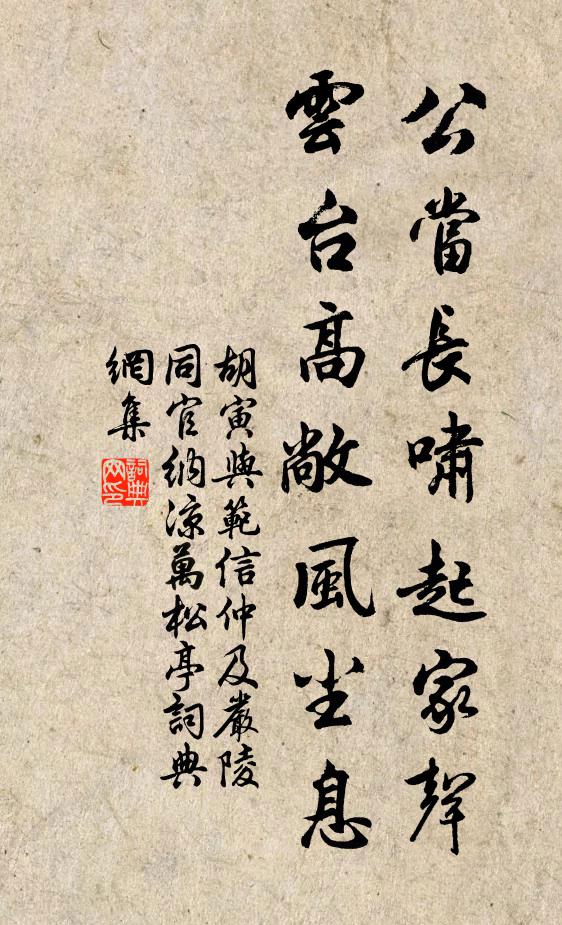 公當長嘯起家聲
雲台高敞風尘息
胡寅與範信仲及嚴陵
同官納凉萬松亭詞典
網集
詞典
网印